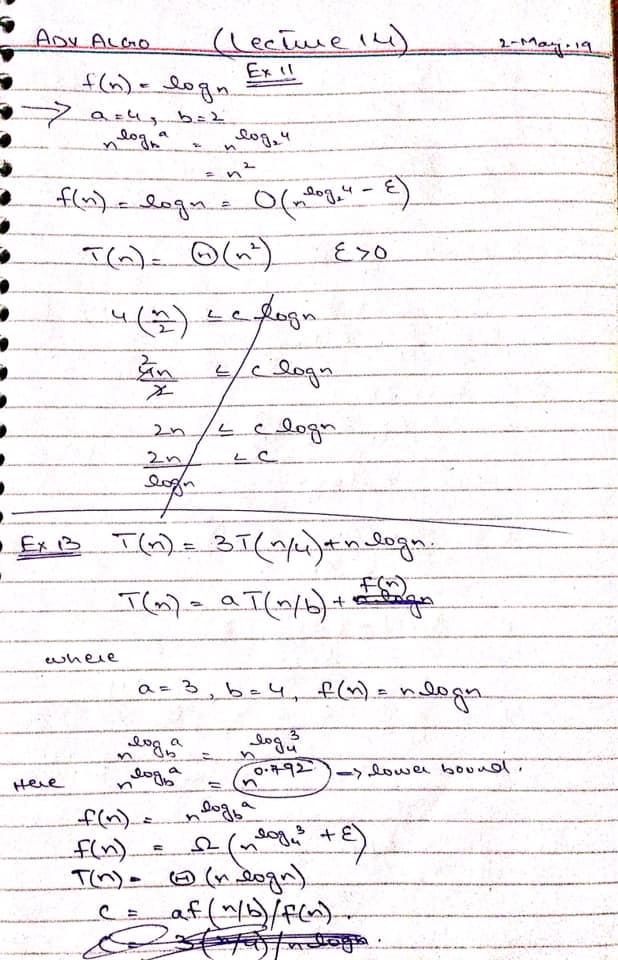 ADV ALGO (Lecture 14) 2-May-19
Ex 11
f(n) = logn
→ a=4, b=2
n^log_b a = n^log_2 4
= n^2
f(n) = logn = O(n^log_2 4 - ε)
T(n) = Θ(n^2) ε>0
4(n/2) ≤ c logn
4n/2 ≤ c logn
2n ≤ c logn
2n/logn ≤ c
Ex 13 T(n) = 3T(n/4)+nlogn.
T(n) = aT(n/b) + f(n)
where
a = 3, b = 4, f(n) = nlogn
n^log_b a = n^log_4 3
Here n^log_b a = n^0.792 → lower bound.
f(n) = n^log_b a
f(n) = Ω(n^log_4 3 + ε)
T(n) = Θ(nlogn)
c = af(n/b)/f(n).
c = 3(n/4)/nlogn.